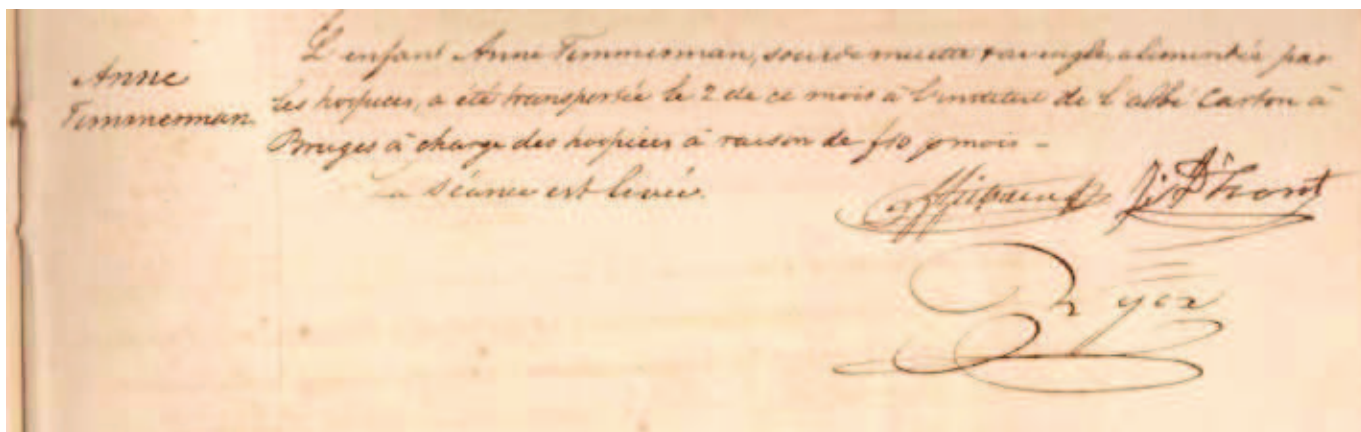 Anne
Timmerman.
L'enfant Anne Timmerman, sourde muette & aveugle, alimentée par
les hospices, a été transportée le 2 de ce mois à l'institut de l'abbé Carton à
Bruges à charge des hospices à raison de f10 p mois.
La séance est levée.